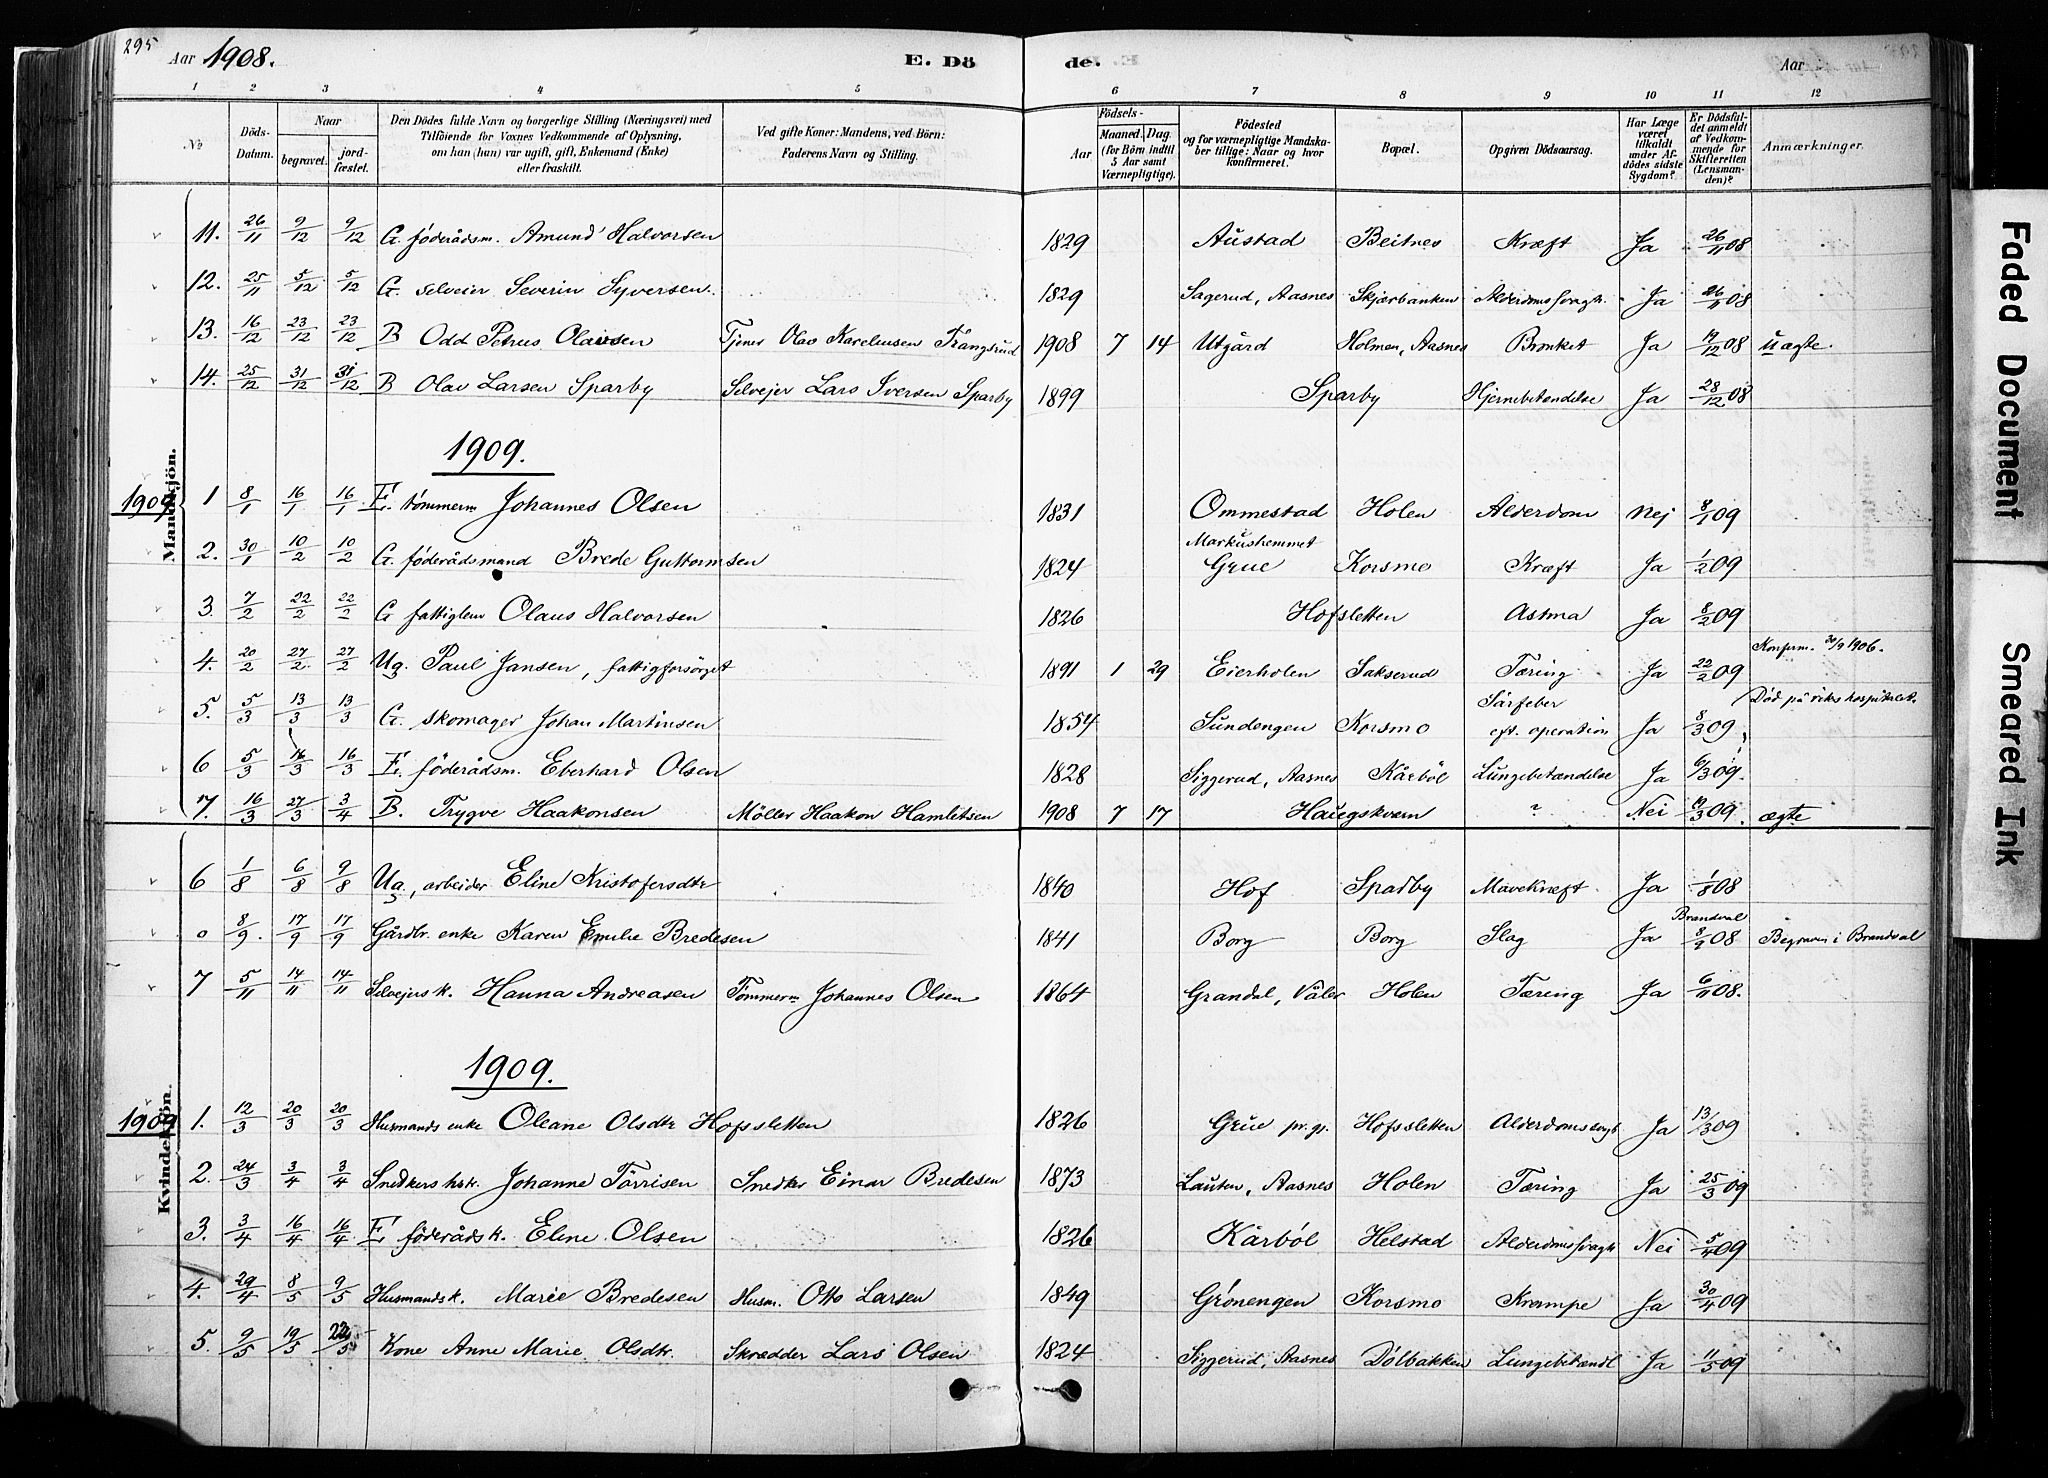 295
Aar 1908. E. Dö de. Aar
1 2 3 4 5 6 7 8 9 10 11 12
No Döds-Datum. Naar begravet. jordfæstet. Den Dödes fulde Navn og borgerlige Stilling (Næringsvei) med Tilföiende for Voxnes Vedkommende af Oplysning, om han (hun) var ugift, gift, Enkemand (Enke) eller fraskilt. Ved gifte Koner: Mandens, ved Börn: Faderens Navn og Stilling. Födsels- Aar Maaned. Dag. (for Börn indtil 5 Aar samt Værnepligtige). Födested og for værnepligtige Mandskaber tillige: Naar og hvor konfirmeret. Bopæl. Opgiven Dödsaarsag. Har Læge været tilkaldt under Afdödes sidste Sygdom? Er Dödsfaldet anmeldt af Vedkommende for Skifteretten (Lensmanden)? Anmærkninger.
Mandskjön.
11. 26/11 9/12 9/12 G. föderådsm. Amund Halvorsen 1829 Austad Beitnes Kræft Ja 26/11 08
12. 25/11 5/12 5/12 G. selveier Severin Syversen. 1829 Sagerud, Aasnes Skjærbanken Alderdomssvagh. Ja 26/11 08
13. 16/12 23/12 23/12 B Odd Petrus Olavsen Tjener Olav Kareliusen Trangsrud 1908 7 14 Utgård Holmen, Aasnes Bronket Ja 19/12 08 uægte.
14. 25/12 31/12 31/12 B Olav Larsen Sparby Selvejer Lars Iversen Sparby 1899 Sparby Hjernebetændelse Ja 28/12 08
1909.
1909 1 8/1 16/1 16/1 E. tömmerm Johannes Olsen 1831 Ommestad Holen Alderdom Nej 8/1 09
2. 30/1 10/2 10/2 G. föderådsmand Brede Guttormsen 1824 Markushemmet Grue Korsmo Kræft Ja 1/2 09
3. 7/2 22/2 22/2 G fattiglem Olaus Halvorsen 1826 Hofsletten Astma Ja 8/2 09
4. 20/2 27/2 27/2 Ug. Paul Jansen, fattigforsörget 1891 1 29 Eierholen Sakserud Tæring Ja 22/2 09 Konfirm. 30/9 1906.
5. 5/3 13/3 13/3 G. skomager Johan Martinsen 1854 Sundengen Korsmo Sårfeber eft. operation Ja 8/3 09 Död på rikshospitalet.
6 5/3 16/3 16/3 E. föderådsm. Eberhard Olsen 1828 Siggerud, Aasnes Kårböl Lungebetændelse Ja 6/3 09.
7. 16/3 27/3 3/4 B. Trygve Haakonsen Möller Haakon Hamletsen 1908 7 17 Haugskvern ? Nei 19/3 09. ægte
Kvindekjön.
6 1/8 6/8 9/8 Ug, arbeider Eline Kristofersdtr 1840 Hof Sparby Mavekræft Ja 1/8 08
0 8/9. 17/9 17/9 Gårdbr. enke Karen Emilie Bredesen 1841 Borg Borg Slag Ja Brandval 8/9 08 Begraven i Brandval
7 5/11 14/11 14/11 Selvejersk. Hanna Andreasen Tömmerm Johannes Olsen 1864 Grandal, Våler Holen Tæring Ja 6/11 08.
1909.
1909 1. 12/3 20/3 20/3 Husmandsenke Oleane Olsdtr Hofssletten 1826 Grue pr.gj. Hofssletten Alderdomssvagh Ja 13/3 09
2. 24/3 3/4 3/4 Snedkers hstr. Johanne Törrisen Snedker Einar Bredesen 1873 Lauten, Aasnes Holen Tæring Ja 25/3 09
3. 3/4 16/4 16/4 E föderådsk. Eline Olsen 1826 Kårböl Helstad Alderdomssvagh Nei 5/4 09
4. 29/4 8/5 9/5 Husmandsk. Marie Bredesen Husm. Otto Larsen 1849 Grönengen Korsmo Krampe Ja 30/4 09
5. 9/5 19/5 22/5 Kone Anne Marie Olsdtr. Skrædder Lars Olsen 1824 Siggerud, Aasnes Dölbakken Lungebetændl Ja 11/5 09
Faded Document
Smeared Ink